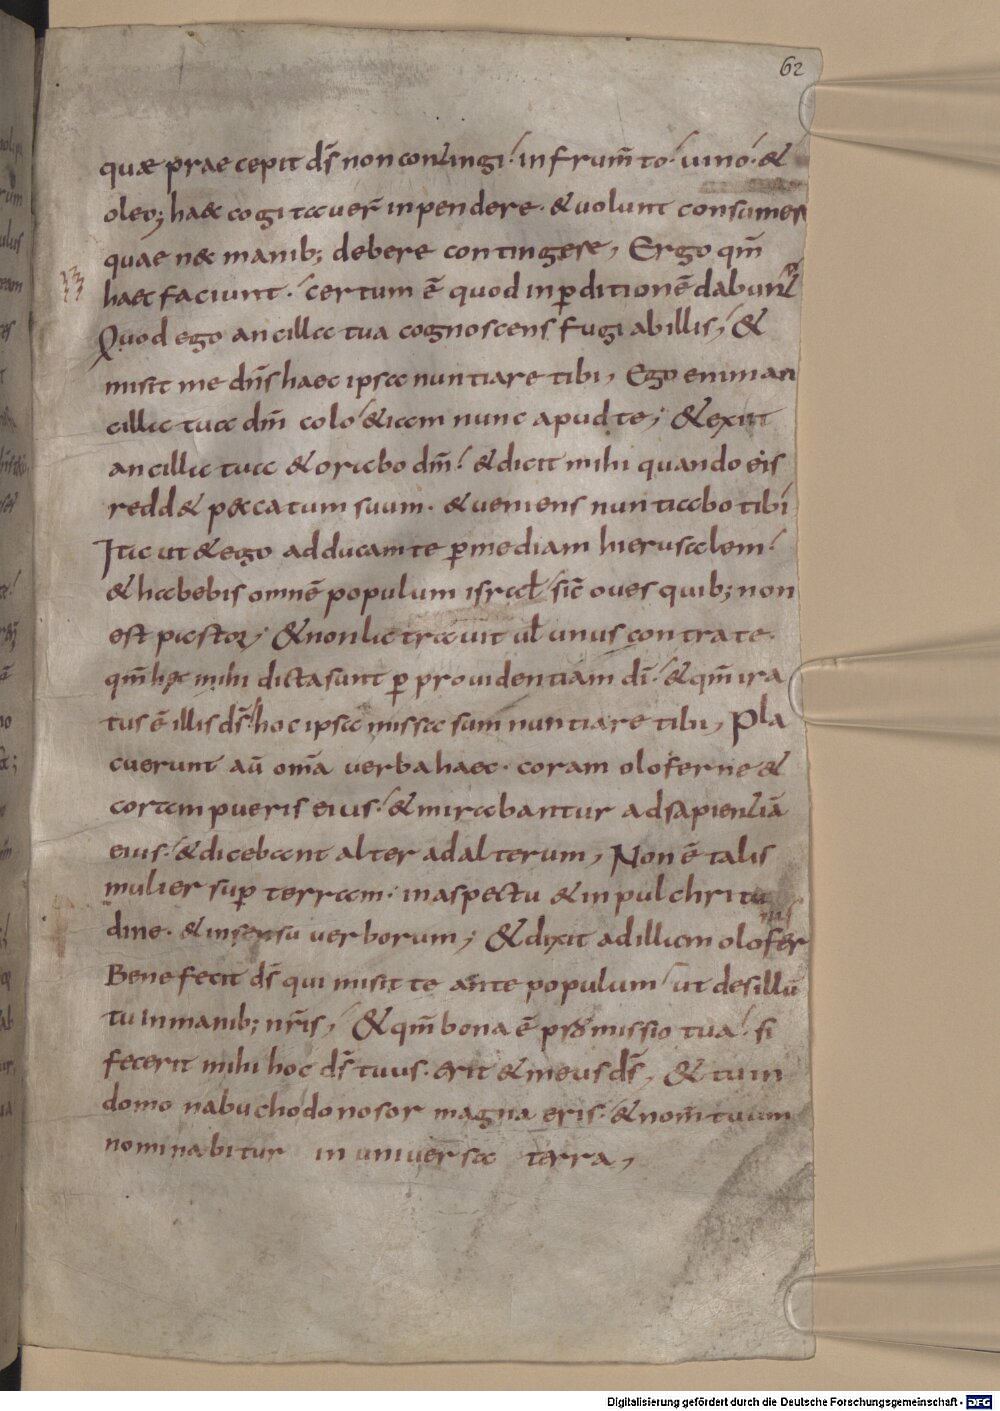 62
quae prae cepit d̄s non contingi. in frum̄to. uino. &
oleo; haec cogitauer̄ inpendere. & uolunt consumere
quae nec manib; debere contingere, Ergo qm̄
haec faciunt. certum ē quod in p̄ditionē dabunt̄
Quod ego ancilla tua cognoscens fugi ab illis, &
misit me dn̄s haec ipsa nuntiare tibi, Ego enim an
cilla tua dm̄ colo & iam nunc apud te; & exiit
ancilla tua & orabo dm̄. & dicit mihi quando eis
redd& peccatum suum. & ueniens nuntiabo tibi
Ita ut & ego adducam te p̄ mediam hierusalem.
& habebis omnē populum israhl̄ sic̄ oues quib; non
est pastor; & non latrauit ul̄ unus contra te.
qm̄ haec mihi dicta sunt p̄ prouidentiam dī. & qm̄ ira
tus ē illis d̄s. hoc ipsa missa sum nuntiare tibi, Pla
cuerunt au̅ om̄a uerba haec. coram oloferne &
coram pueris eius. & mirabantur ad sapientiā
eius. & dicebant alter ad alterum, Non ē talis
mulier sup̄ terram. in aspectu & in pulchritu
dine. & in sensu uerborum; & dixit ad illam olofer
nis
Bene fecit d̄s qui misit te ante populum ut des illū
tu in manib; nr̄is, & qm̄ bona ē promissio tua. si
fecerit mihi hoc d̄s tuus. erit & meus d̄s, & tu in
domo nabuchodonosor magna eris. & nom̄ tuum
nominabitur in uniuersa terra,
Digitalisierung gefördert durch die Deutsche Forschungsgemeinschaft - DFG